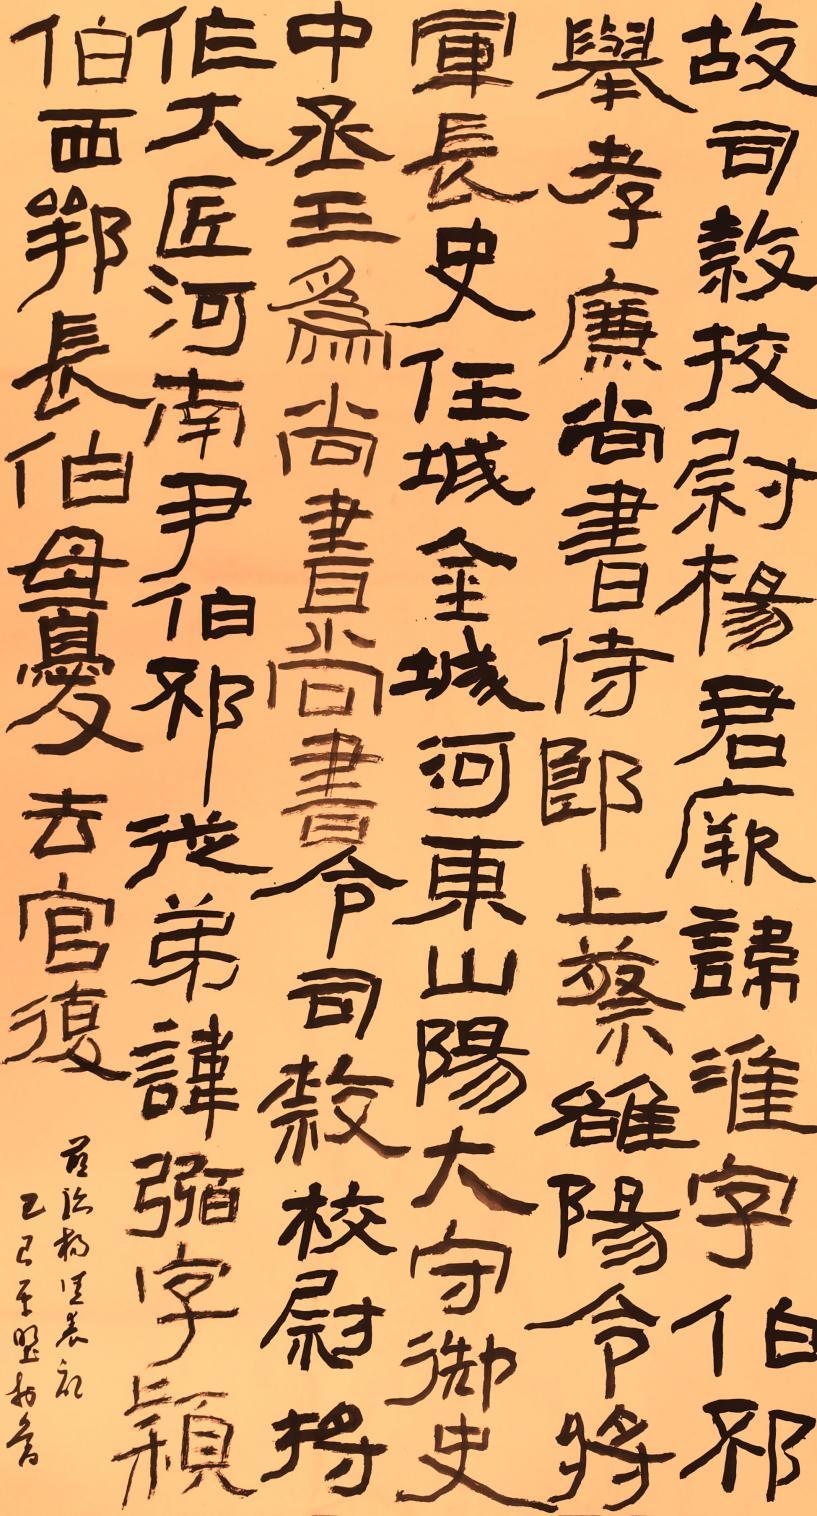 故司敎挍尉楊君厥諱淮字伯邳
舉孝廉尚書侍郎上蔡雒陽令將
軍長史任城金城河東山陽大守御史
中丞王為尚書尚書令司敎校尉將
作大匠河南尹伯邳從弟諱弼字穎
伯西鄂長伯母憂去官復
楊淮表
乙巳